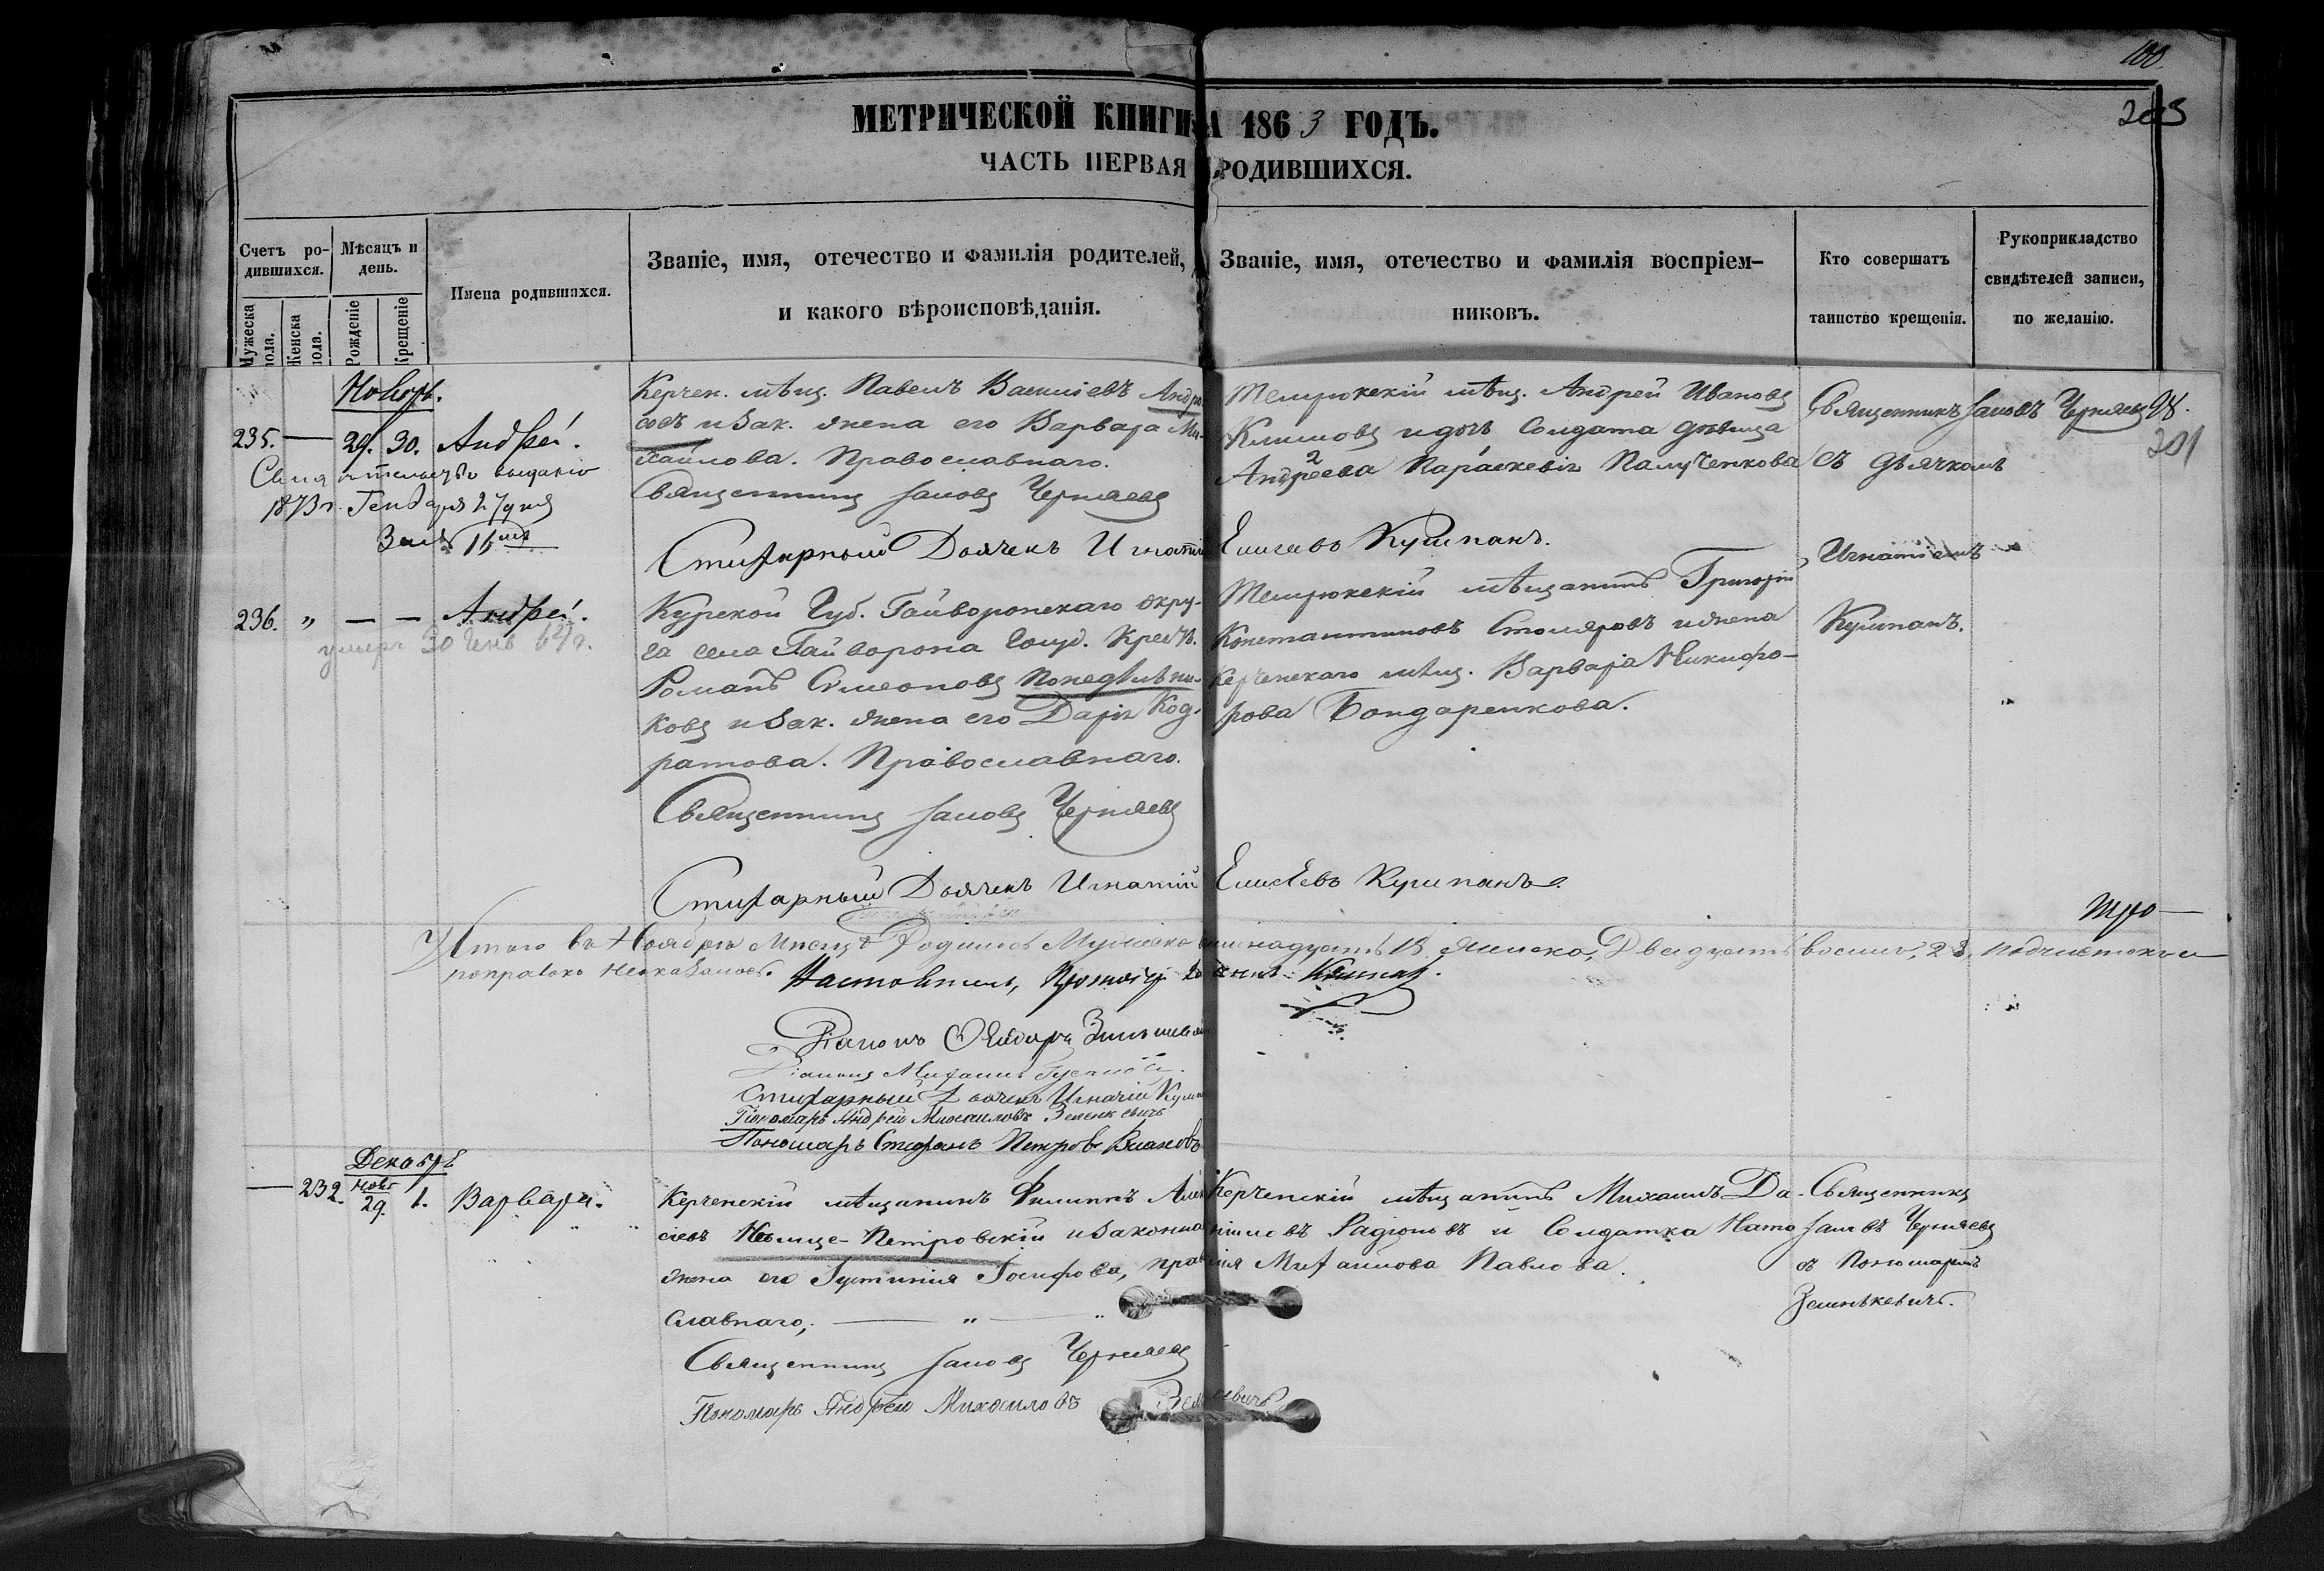 100
203
МЕТРИЧЕСКОЙ КНИГИ НА 1863 ГОДЪ.
ЧАСТЬ ПЕРВАЯ РОДИВШИХСЯ.
Счетъ родившихся.
Мужеска пола.
Женска пола.
Мѣсяцъ и день.
Рожденіе
Крещеніе
Имена родившихся.
Званіе, имя, отечество и фамилія родителей,
и какого вѣроисповѣданія.
Званіе, имя, отечество и фамилія воспріем-
никовъ.
Кто совершатъ
таинство крещенія.
Рукоприкладство
свидѣтелей записи,
по желанію.
Ноябрь.
235. — 29. 30. Андрей.
1873 г. Генваря 27 дня
Керчен. мѣщ. Павелъ Василіевъ
и зак. жена его Варвара Ми-
хайлова. Православнаго.
Священникъ Іаковъ Черняевъ
Стихарный Дьячекъ Игнатій Елисѣевъ Кушпанъ.
Темрюкскій мѣщ. Андрей Ивановъ
Климовъ и дочь Солдата дѣвица
Андреева Параскевія
Священникъ Іаковъ Черняевъ
съ дьячкомъ
Игнатіемъ
Кушпанъ.
201
236. " — — Андрей.
умеръ 30
Курской Губ. Гайворонскаго окру-
га села Гайворона Госуд. Крест.
Романъ Симеоновъ Понедѣльни-
ковъ и Зак. жена его Дарія Код-
ратова. Православнаго.
Священникъ Іаковъ Черняевъ
Стихарный Дьячекъ Игнатій Елисѣевъ Кушпанъ.
Темрюкскій мѣщанинъ Григорій
Константиновъ Столяровъ и жена
Керченскаго мѣщ. Варвара Никифо-
рова Бондаренкова.
Итого въ Ноябрѣ Месяцѣ Родилось Мужеска женска, Двадцать восемь, 28. подчистокъ и
поправокъ неоказалось. Настоятель, Протоіерей
Діаконъ
Діаконъ Михаилъ
Стихарный Дьячекъ Игнатій
Пономарь Андрей Михаиловъ Зеленкевичъ
Пономарь Стефанъ Петровъ
Декабрь
— 232. Нояб. 29. 1. Варвара.
Керченскій мѣщанинъ Филиппъ
сіевъ Петровскій и законная
жена его Іустинія Іосифова, право
славнаго,
Священникъ Іаковъ Черняевъ
Пономарь Андрей Михаиловъ Зеленкевичъ
Керченскій мѣщанинъ Михаилъ Да-
ніиловъ Радіоновъ и Солдатка Ната
лія Михаилова Павлова.
Священникъ
Іаковъ Черняевъ
съ Пономаремъ
Зеленкевичъ.